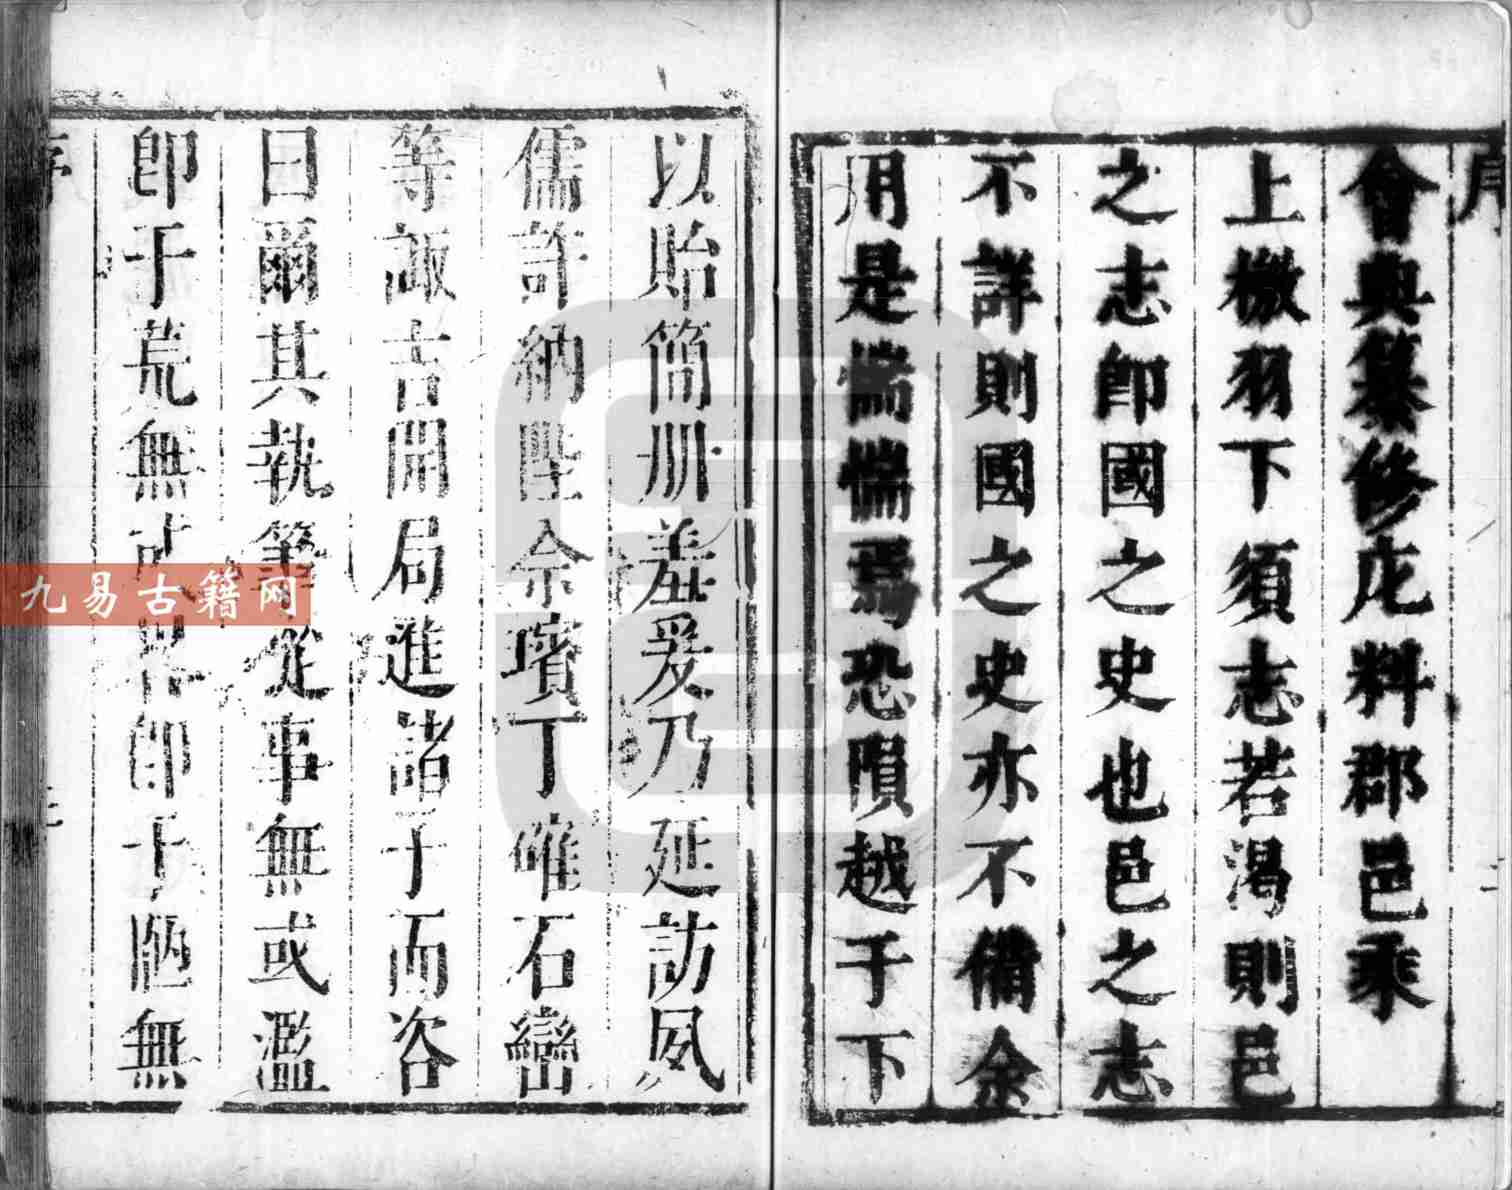 序
會典纂修庀料郡邑乘
上檄羽下須志若渴則邑
之志卽國之史也邑之志
不詳則國之史亦不備余
用是惴惴焉恐隕越于下
二
以貽簡册羞爰乃延訪夙
儒許納陛佘璸丁確石巒
等諏吉開局進諸子而咨
曰爾其執筆從事無或濫
卽于荒無或畧卽于陋無
序
九易古籍网